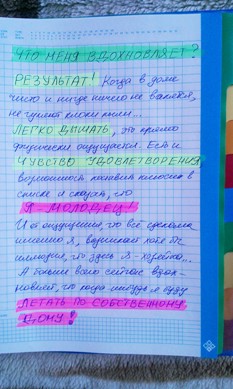 ЧТО МЕНЯ ВДОХНОВЛЯЕТ?
РЕЗУЛЬТАТ! Когда в доме
чисто и нигде ничего не валяется,
не гуляют клоки пыли...
ЛЕГКО ДЫШАТЬ, это прямо
физически ощущается. Есть и
ЧУВСТВО УДОВЛЕТВОРЕНИЯ,
возможность поставить плюсики в
списке и сказать, что
Я - МОЛОДЕЦ!
И от ощущения, что всё сделала
именно я, возникает хотя бы
иллюзия, что здесь Я - хозяйка...
А больше всего сейчас вдох-
новляет, что когда-нибудь я буду
ЛЕТАТЬ ПО СОБСТВЕННОМУ
ДОМУ!